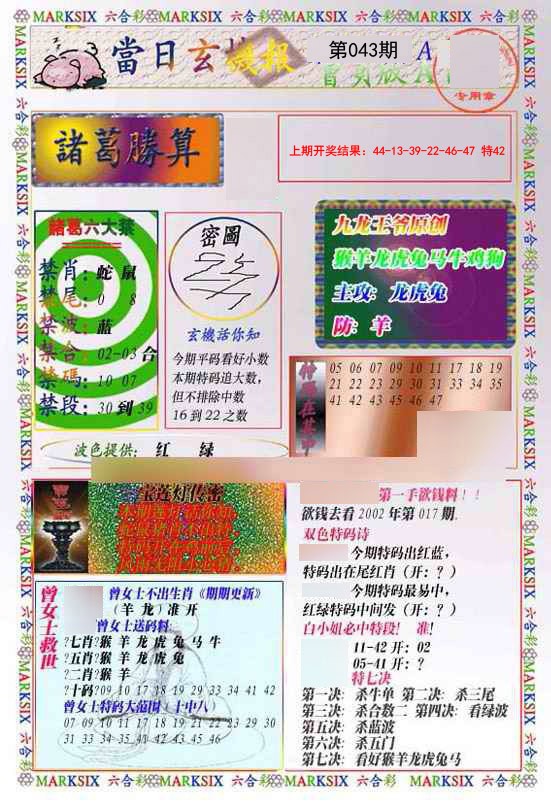 MARKSIX 六合彩 MARKSIX 六合彩 MARKSIX 六合彩 MARKSIX 六合彩
當日玄機报
第043期 A
专用章
諸葛勝算
上期开奖结果：44-13-39-22-46-47 特42
諸葛六大禁
禁肖：蛇 鼠
禁尾：0 8
禁波：蓝
禁合：02-03 合
禁碼：10 07
禁段：30 到 39
密圖
玄機话你知
今期平码看好小数
本期特码追大数，
但不排除中数
16 到 22 之数
九龙王爷原创
猴羊龙虎兔马牛鸡狗
主攻：龙虎兔
防：羊
05 06 07 09 10 11 17 18 19
21 22 23 29 30 31 33 34 35
41 42 43 45 46 47
波色提供： 红 绿
宝莲灯传密
第一手欲钱料！！
欲钱去看 2002 年第 017 期.
双色特码诗
今期特码出红蓝，
特码出在尾红肖（开：？）
今期特码最易中，
红绿特码中间发（开：？）
白小姐必中特段！ 准！
11-42 开：02
05-41 开：？
特七决
第一决：杀牛单 第二决：杀三尾
第三决：杀合数二 第四决：看绿波
第五决：杀蓝波
第六决：杀五门
第七决：看好猴羊龙虎兔马
曾女士救世
曾女士不出生肖《期期更新》
（羊 龙）准 开
曾女士送码料
?七肖?猴 羊 龙 虎 兔 马 牛
?五肖?猴 羊 龙 虎 兔
?二肖?猴 羊
?十码?09 10 17 18 19 29 33 34 41 42
曾女士特码大范围（十中八）
07 09 10 11 17 18 19 21 22 23 29 30
31 33 34 35 41 42 43 45 46
MARKSIX 六合彩 MARKSIX 六合彩 MARKSIX 六合彩 MARKSIX 六合彩